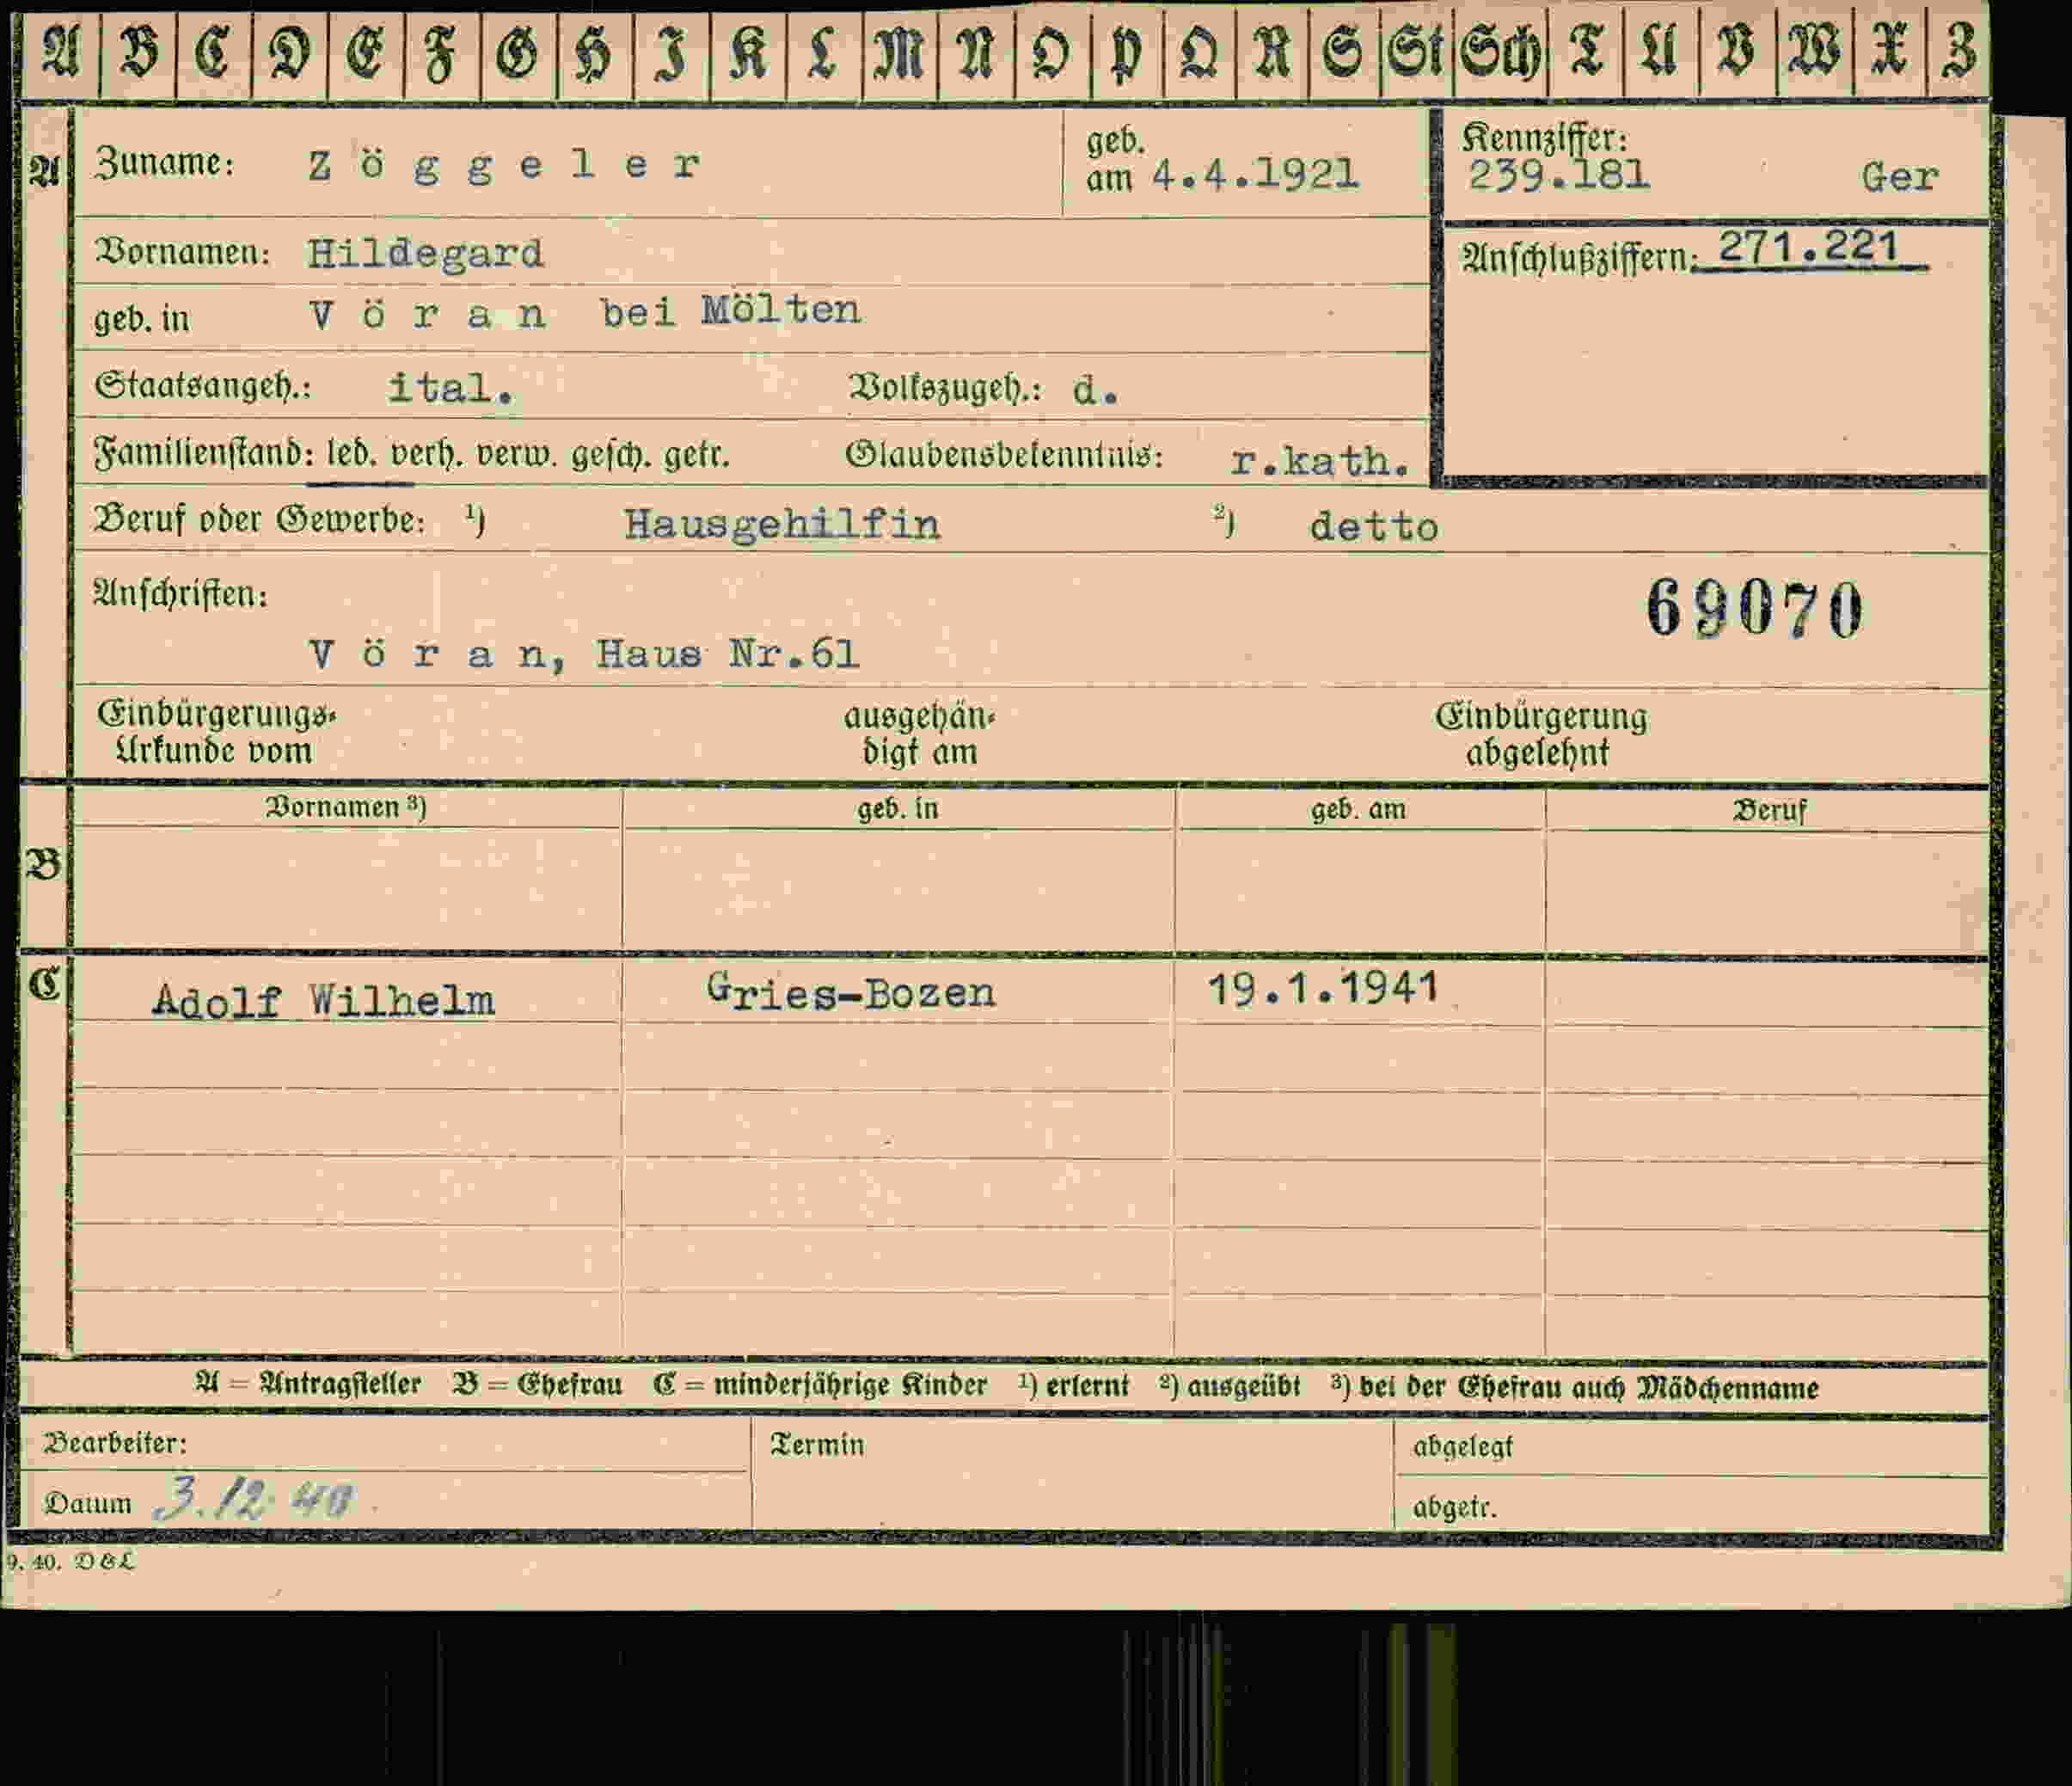 A B C D E F G H I K L M N O P Q R S St Sch T U V W X Z
A
Zuname: Zöggeler
geb. am 4.4.1921
Kennziffer:
239.181 Ger
Vornamen: Hildegard
Anschlußziffern: 271.221
geb. in Vöran bei Mölten
Staatsangeh.: ital. Volkszugeh.: d.
Familienstand: led. verh. verw. gesch. getr. Glaubensbekenntnis: r.kath.
Beruf oder Gewerbe: ¹) Hausgehilfin ²) detto
Anschriften:
69070
Vöran, Haus Nr.61
Einbürgerungs- ausgehän- Einbürgerung
Urkunde vom digt am abgelehnt
Vornamen ³) geb. in geb. am Beruf
B
C Adolf Wilhelm Gries-Bozen 19.1.1941
A = Antragsteller B = Ehefrau C = minderjährige Kinder ¹) erlernt ²) ausgeübt ³) bei der Ehefrau auch Mädchenname
Bearbeiter: Termin abgelegt
Datum 3.12.40 abgetr.
9. 40. D & L